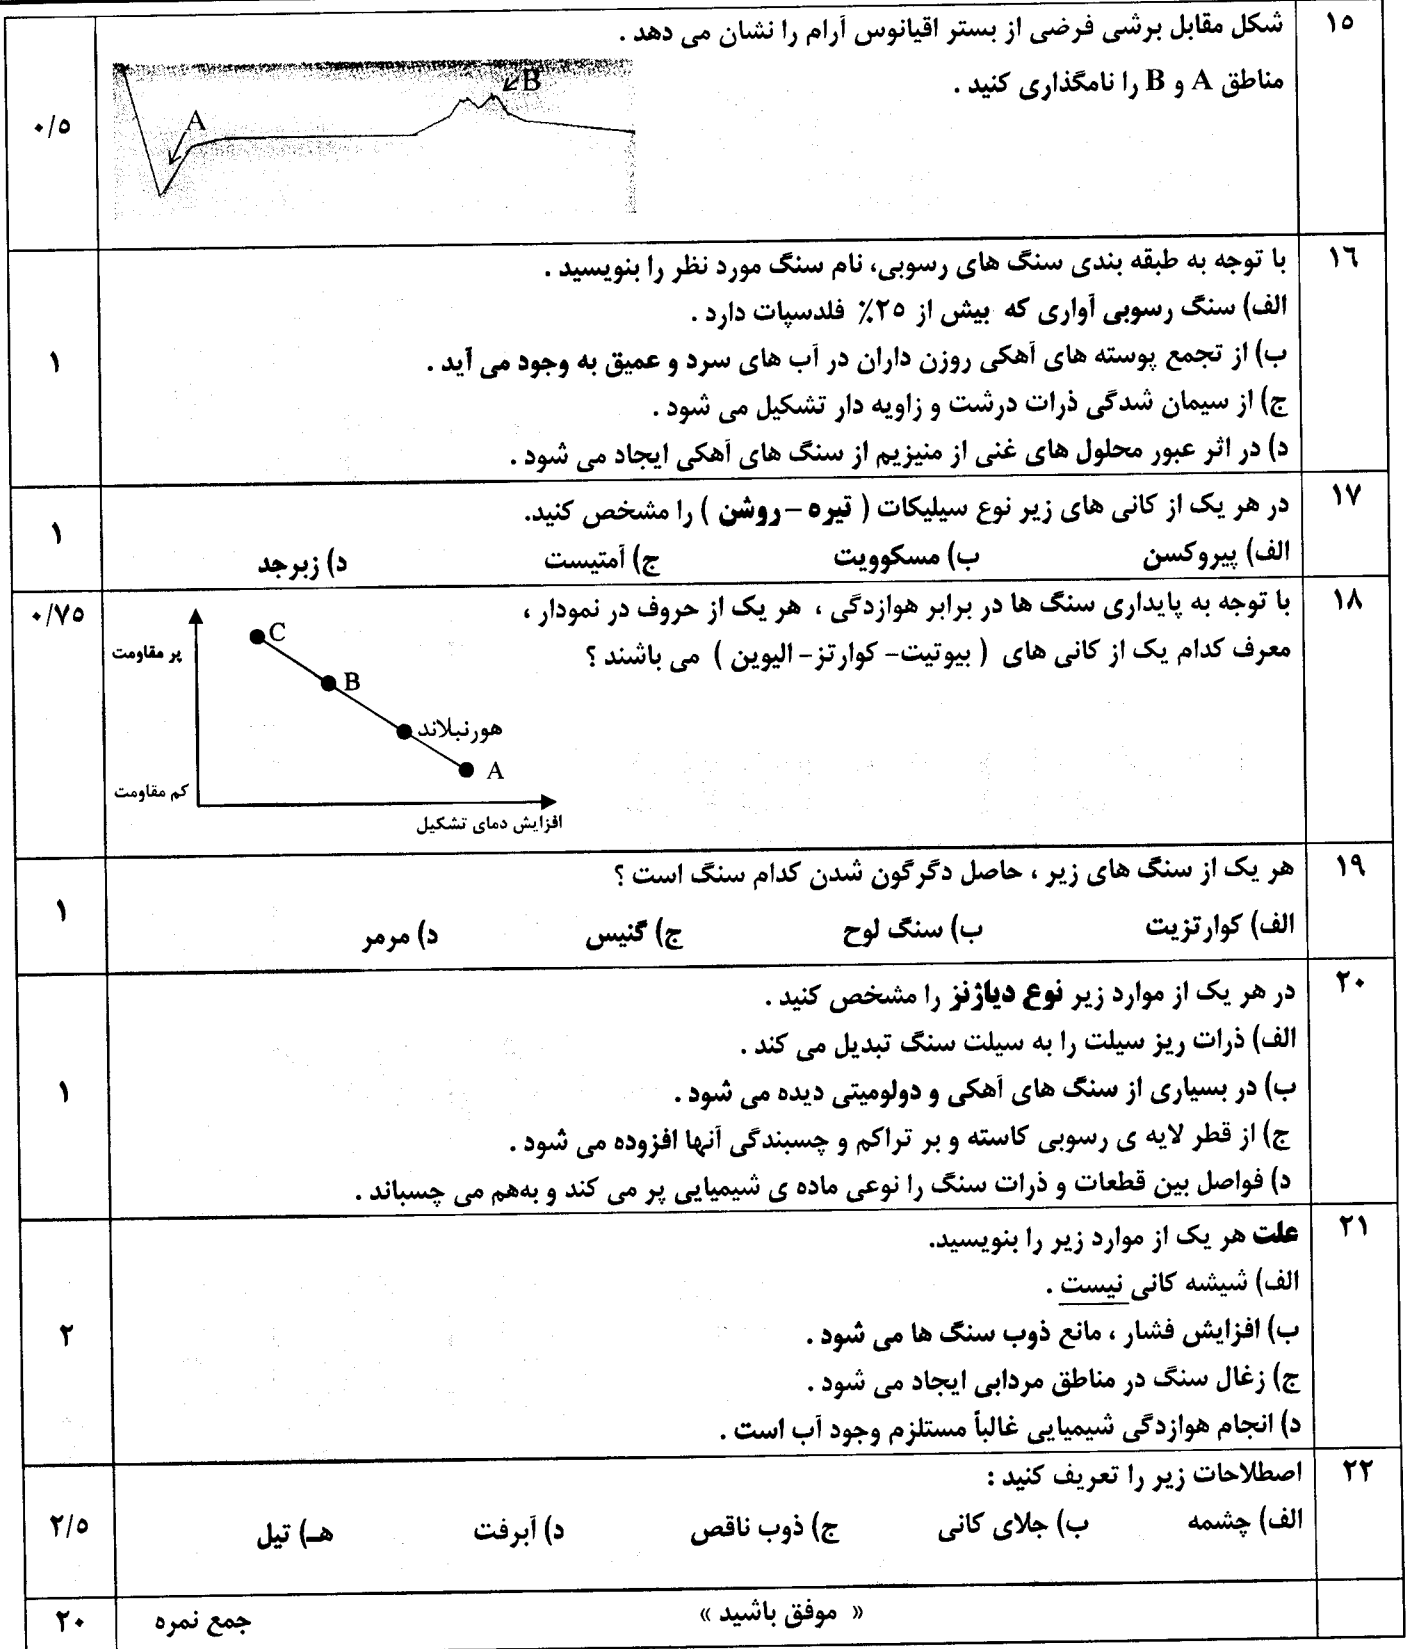 ۱۵
شکل مقابل برشی فرضی از بستر اقیانوس آرام را نشان می دهد .
مناطق A و B را نامگذاری کنید .
A
B
۰/۵
۱۶
با توجه به طبقه بندی سنگ های رسوبی، نام سنگ مورد نظر را بنویسید .
الف) سنگ رسوبی آواری که بیش از ۲۵٪ فلدسپات دارد .
ب) از تجمع پوسته های آهکی روزن داران در آب های سرد و عمیق به وجود می آید .
ج) از سیمان شدگی ذرات درشت و زاویه دار تشکیل می شود .
د) در اثر عبور محلول های غنی از منیزیم از سنگ های آهکی ایجاد می شود .
۱
۱۷
در هر یک از کانی های زیر نوع سیلیکات ( تیره – روشن ) را مشخص کنید.
الف) پیروکسن ب) مسکوویت ج) آمتیست د) زبرجد
۱
۱۸
با توجه به پایداری سنگ ها در برابر هوازدگی ، هر یک از حروف در نمودار ،
معرف کدام یک از کانی های ( بیوتیت- کوارتز- الیوین ) می باشند ؟
پر مقاومت
C
B
هورنبلاند
A
کم مقاومت
افزایش دمای تشکیل
۰/۷۵
۱۹
هر یک از سنگ های زیر ، حاصل دگرگون شدن کدام سنگ است ؟
الف) کوارتزیت ب) سنگ لوح ج) گنیس د) مرمر
۱
۲۰
در هر یک از موارد زیر نوع دیاژنز را مشخص کنید .
الف) ذرات ریز سیلت را به سیلت سنگ تبدیل می کند .
ب) در بسیاری از سنگ های آهکی و دولومیتی دیده می شود .
ج) از قطر لایه ی رسوبی کاسته و بر تراکم و چسبندگی آنها افزوده می شود .
د) فواصل بین قطعات و ذرات سنگ را نوعی ماده ی شیمیایی پر می کند و بههم می چسباند .
۱
۲۱
علت هر یک از موارد زیر را بنویسید.
الف) شیشه کانی نیست .
ب) افزایش فشار ، مانع ذوب سنگ ها می شود .
ج) زغال سنگ در مناطق مردابی ایجاد می شود .
د) انجام هوازدگی شیمیایی غالباً مستلزم وجود آب است .
۲
۲۲
اصطلاحات زیر را تعریف کنید :
الف) چشمه ب) جلای کانی ج) ذوب ناقص د) آبرفت هـ) تیل
۲/۵
« موفق باشید »
جمع نمره
۲۰